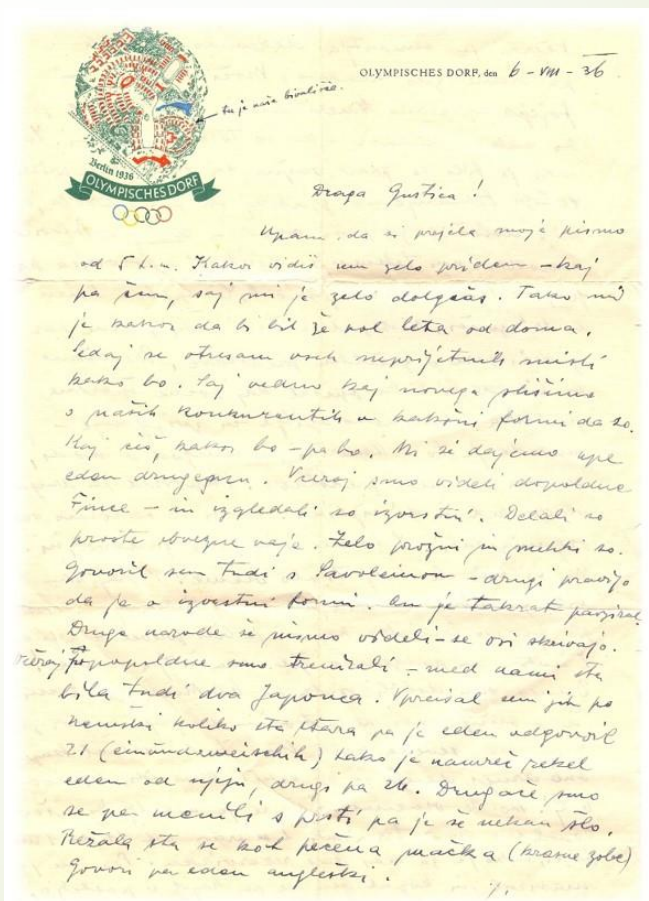 OLYMPISCHES DORF, den 6-VIII-36
tu je naše bivališče.
Berlin 1936
OLYMPISCHES DORF
Draga Gustica!
Upam, da si prejela moje pismo
od 5 t.m. Kakor vidiš sem zelo priden - kaj
pa čem, saj mi je zelo dolgčas. Tako mi
je kakor da bi bil že pol leta od doma.
Sedaj se otresam vseh neprijetnih misli
kako bo. Saj vedno kaj novega slišimo
o naših konkurentih v kakšni formi da so.
Kaj češ, kakor bo - pa bo. Mi si dajemo upe
eden drugemu. Včeraj smo videli dopoldne
Fince - in izgledali so izvrstni. Delali so
proste obvezne vaje. Zelo prožni in mehki so.
Govoril sem tudi s Savolainom - drugi pravijo
da je v izvrstni formi. on je takrat
Druge narode še nismo videli - se vsi skrivajo.
Včeraj popopoldne smo trenirali - med nami sta
bila tudi dva Japonca. Vprašal sem jih po
nemški koliko sta stara pa je eden odgovoril
21 (einundzweischik) tako je namreč rekel
eden od njiju, drugi pa 26. Drugače smo
se pa menili s prsti pa je še nekam šlo.
Režala sta se kot pečena mačka (krasne zobe)
Govori pa eden angleški.